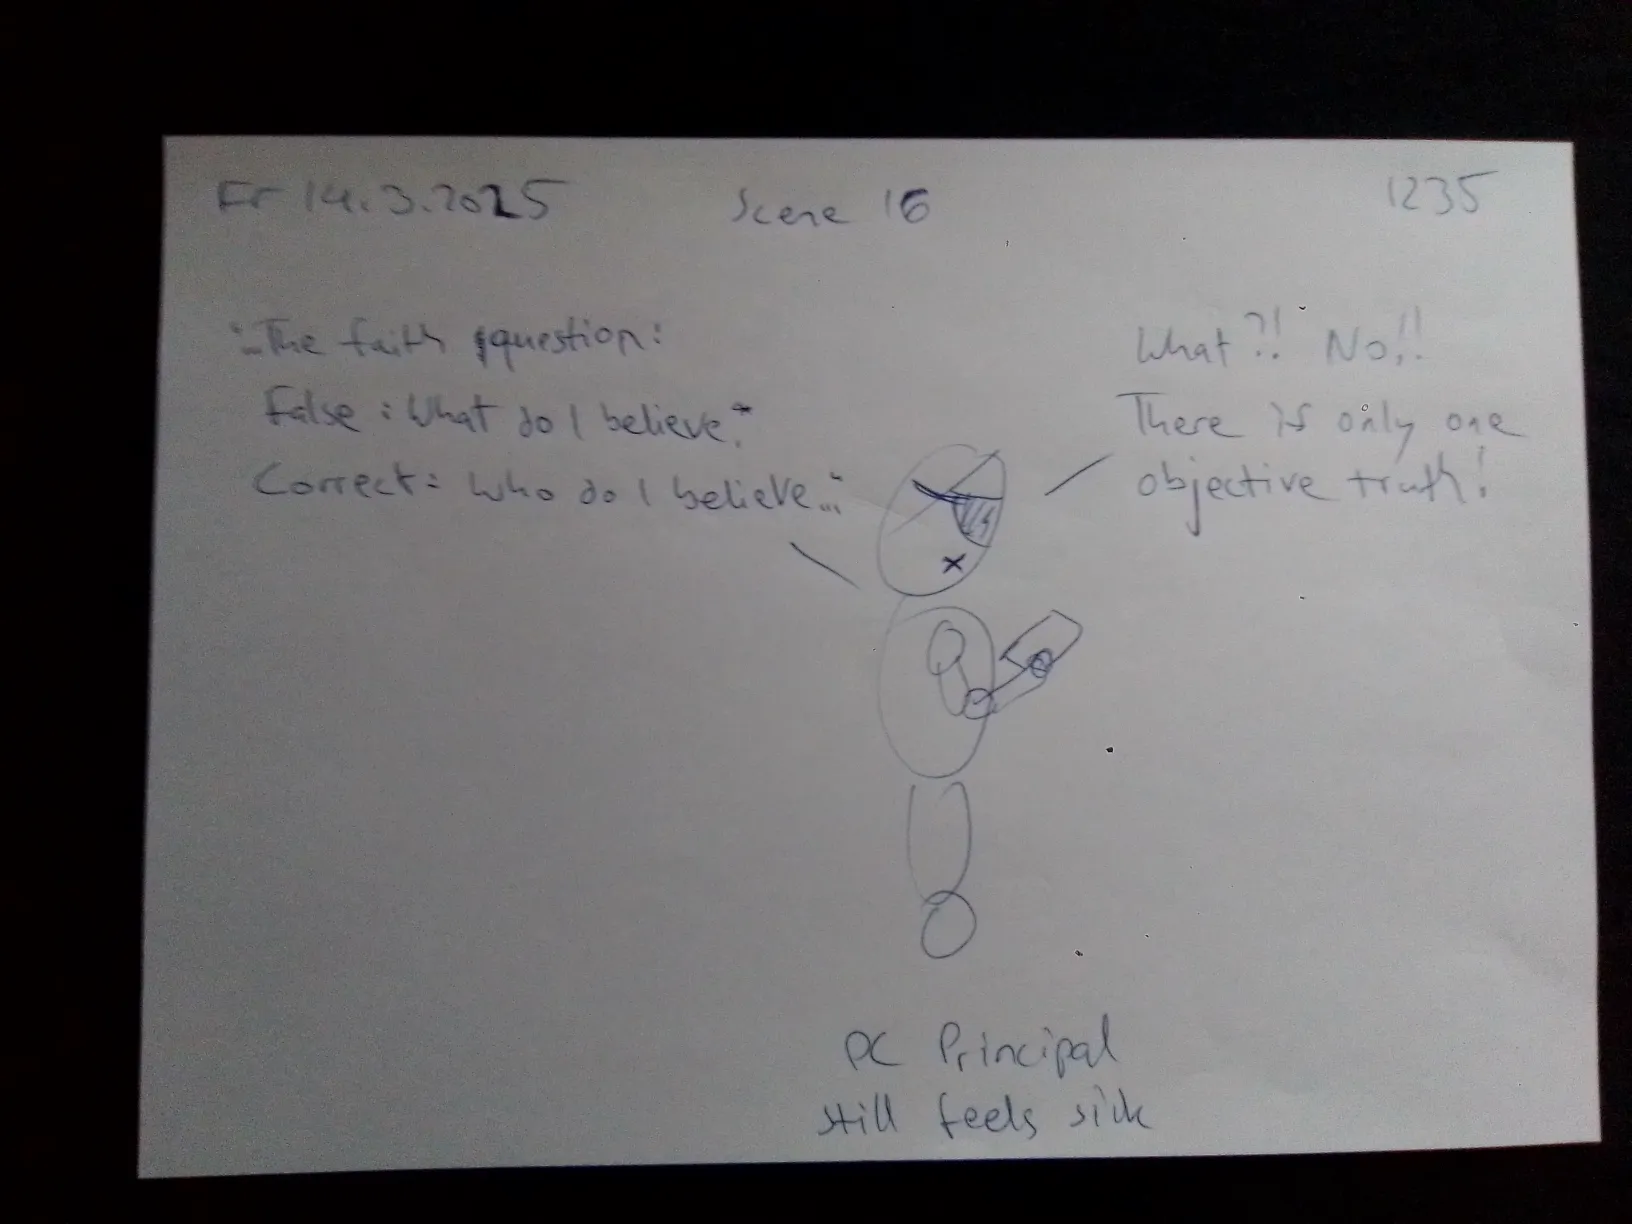 Fr 14.3.2025
Scene 16
1235
"...The faith question:
False: What do I believe.
Correct: Who do I believe..."
What?! No!!
There is only one
objective truth!
PC Principal
still feels sick